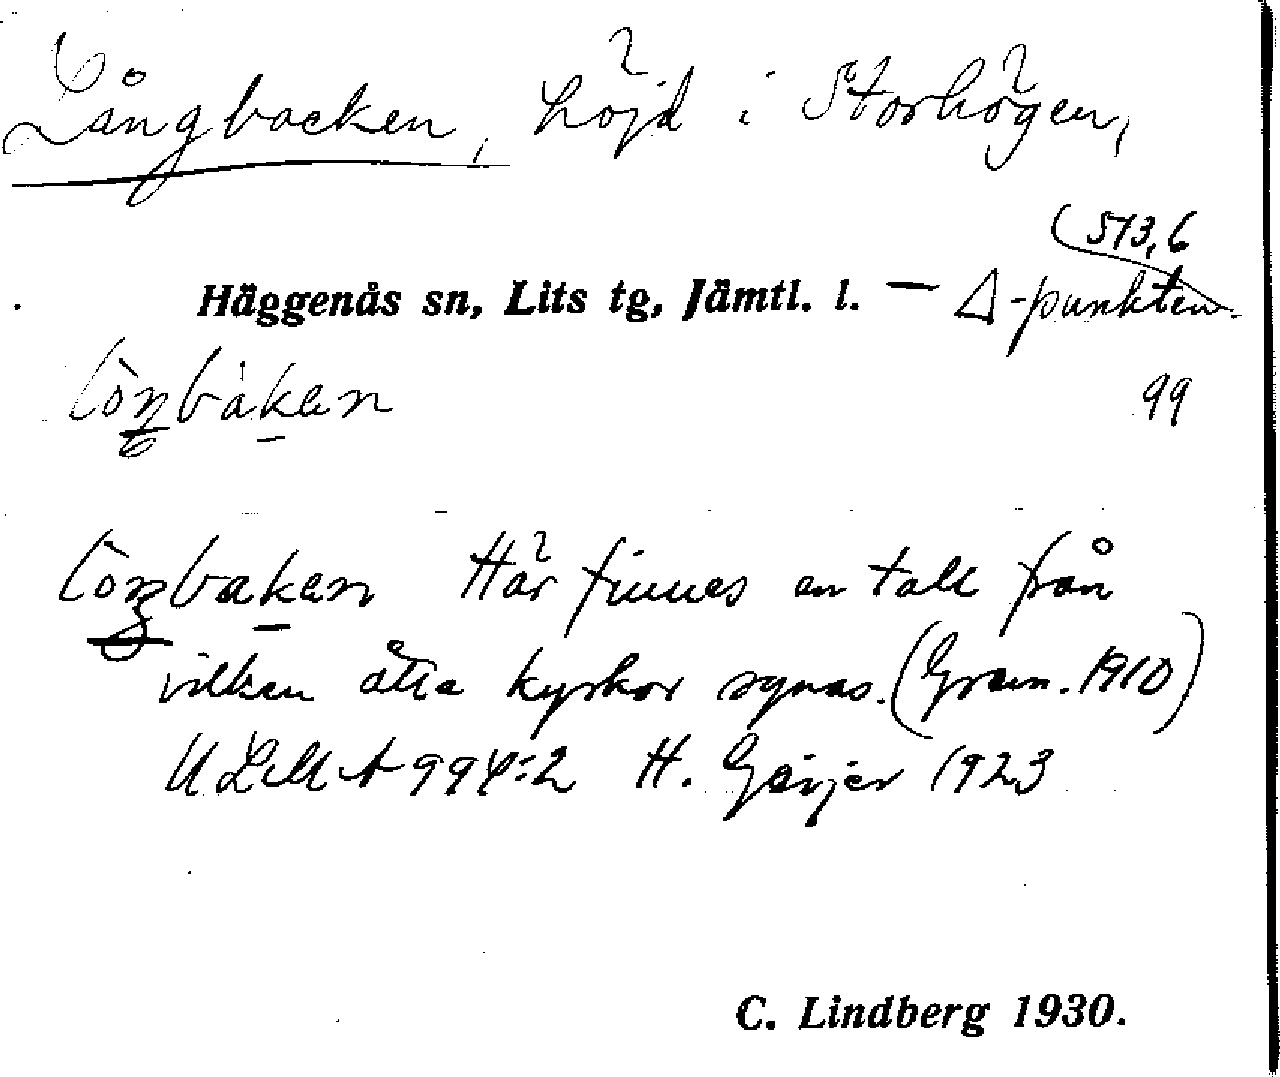 Långbacken, höjd i Storhögen,
513,6
Häggenås sn, Lits tg, Jämtl. l. — Δ-punkten
99
Här finnes en tall från
vilken åtta kyrkor synas. (Gram. 1910)
ULMA 994:2 H. Geijer 1923
C. Lindberg 1930.